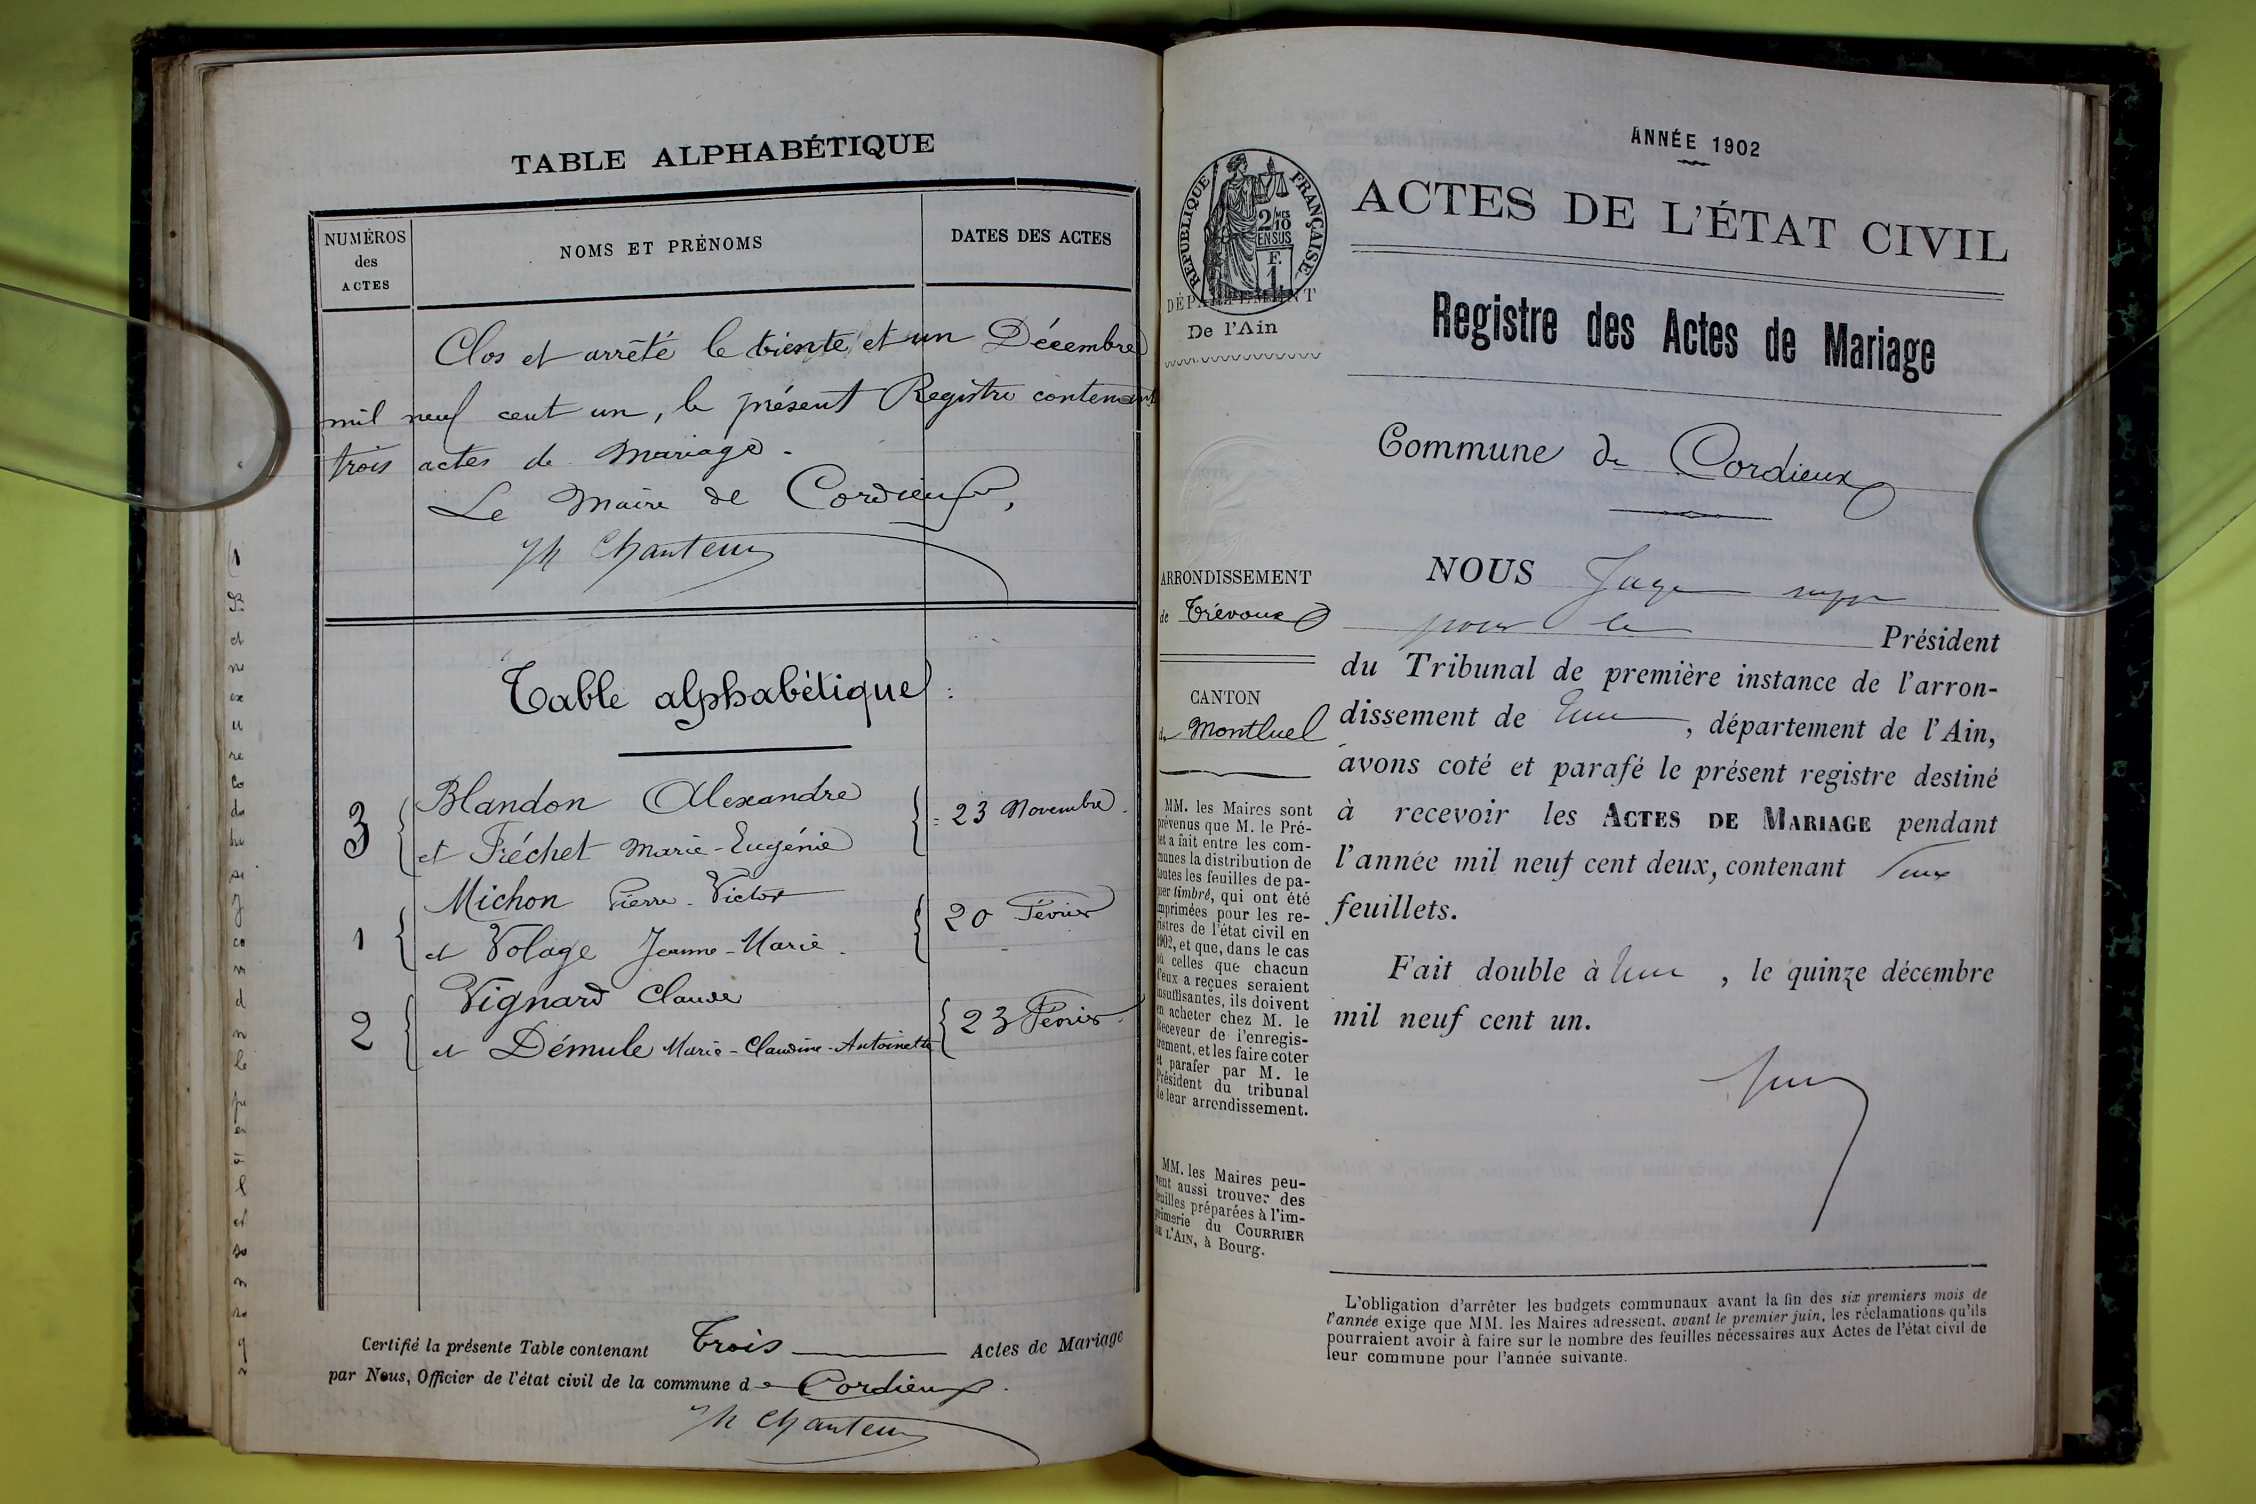 TABLE ALPHABÉTIQUE
NUMÉROS
des
ACTES
NOMS ET PRÉNOMS
DATES DES ACTES
Clos et arrêté le trente et un Décembre
mil neuf cent un, le présent Registre contenant
trois actes de Mariage.
Le Maire de Cordieux,
Jh Chanteur
Table alphabétique :
3 Blandon Alexandre
et Fréchet Marie-Eugénie = 23 Novembre.
1 Michon Pierre-Victor
et Volage Jeanne-Marie. 20 Février
2 Vignard Claude
et Démule Marie-Claudine-Antoinette 23 Février.
Certifié la présente Table contenant Trois Actes de Mariage
par Nous, Officier de l'état civil de la commune de Cordieux.
Jh Chanteur
ANNÉE 1902
ACTES DE L'ÉTAT CIVIL
RÉPUBLIQUE FRANÇAISE
2/10 MES
EN SUS
F.
1.
DÉPARTEMENT
De l'Ain
Registre des Actes de Mariage
Commune de Cordieux
ARRONDISSEMENT
de Trévoux
CANTON
de Montluel
MM. les Maires sont
prévenus que M. le Pré-
fet a fait entre les com-
munes la distribution de
toutes les feuilles de pa-
pier timbré, qui ont été
imprimées pour les re-
gistres de l'état civil en
1902, et que, dans le cas
où celles que chacun
d'eux a reçues seraient
insuffisantes, ils doivent
en acheter chez M. le
Receveur de l'enregis-
trement, et les faire coter
et parafer par M. le
Président du tribunal
de leur arrondissement.
MM. les Maires peu-
vent aussi trouver des
feuilles préparées à l'im-
primerie du COURRIER
DE L'AIN, à Bourg.
NOUS Juge supp
pour le Président
du Tribunal de première instance de l'arron-
dissement de , département de l'Ain,
avons coté et parafé le présent registre destiné
à recevoir les ACTES DE MARIAGE pendant
l'année mil neuf cent deux, contenant
feuillets.
Fait double à , le quinze décembre
mil neuf cent un.
L'obligation d'arrêter les budgets communaux avant la fin des six premiers mois de
l'année exige que MM. les Maires adressent, avant le premier juin, les réclamations qu'ils
pourraient avoir à faire sur le nombre des feuilles nécessaires aux Actes de l'état civil de
leur commune pour l'année suivante.